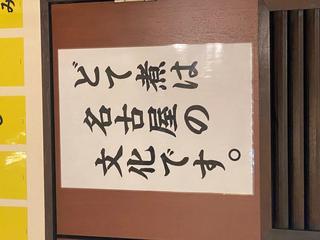 どて煮は
名古屋の
文化です。